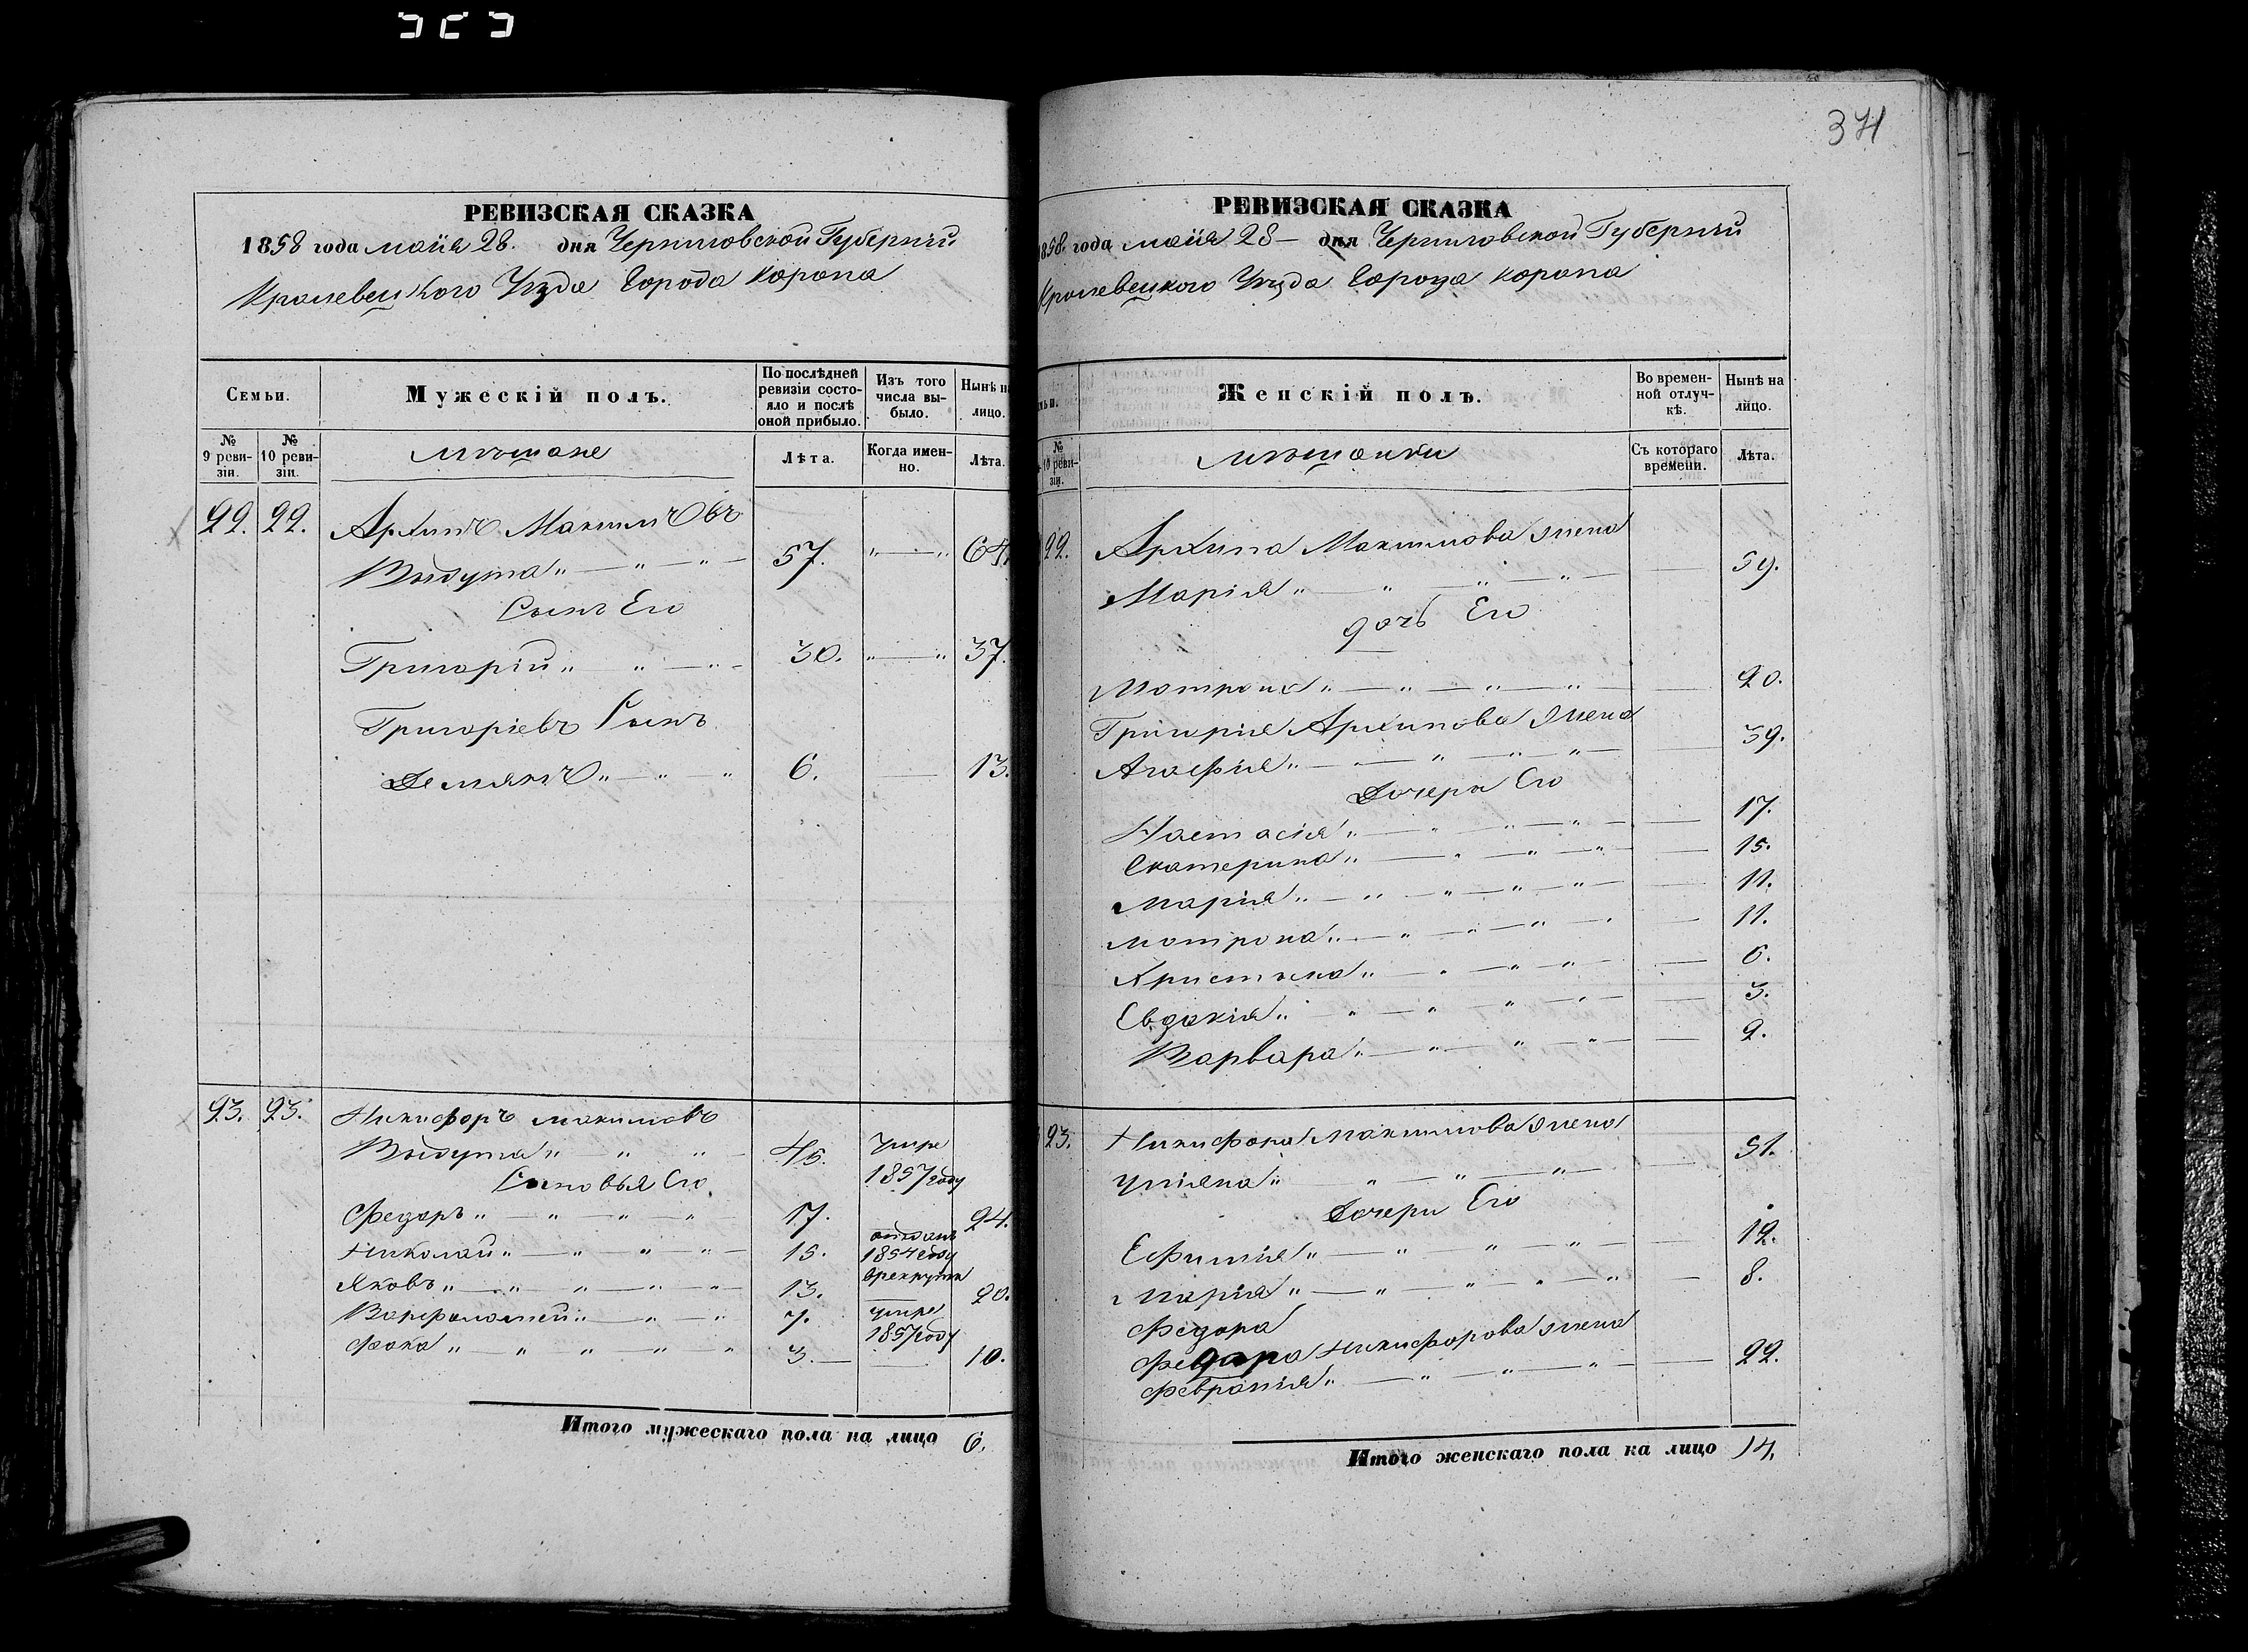 374
РЕВИЗСКАЯ СКАЗКА
1858 года маія 28. дня Черниговской Губерніи
Кролевецкого Уезда Города Коропа
Семьи.
Мужескій полъ.
По послѣдней ревизіи состояло и послѣ оной прибыло.
Изъ того числа выбыло.
Нынѣ на лицо.
№ 9 ревизіи.
№ 10 ревизіи.
мещане
Лѣта.
Когда именно.
Лѣта.
22. 22. Архипъ Максимовъ
Выдута 57. 64.
Сынъ Его
Григорій 30. 37.
Григоріевъ Сынъ
Демянъ 6. 13.
23. 23. Никифоръ Максимовъ
Выдута 45. умре 1857 году
Сыновья Его
Федоръ 17. 24.
Николай 15. отданъ 1854 году в рекруты
Яковъ 13. 20.
Варфоломей 7. умре 1857 году
Фока 3. 10.
Итого мужескаго пола на лицо 6.
РЕВИЗСКАЯ СКАЗКА
1858 года маія 28 дня Черниговской Губерніи
Кролевецкого Уезда Города Коропа
Женскій полъ.
Во временной отлучкѣ.
Нынѣ на лицо.
№ 10 ревизіи.
мещанки
Съ котораго времени.
Лѣта.
22. Архипа Максимова жена
Марія 59.
дочь Его
Мотрона 20.
Григорія Архипова жена
Агафія 39.
Дочери Его
Настасія 17.
Екатерина 15.
Марія 11.
Мотрона 11.
Христина 6.
Евдокія 3.
Варвара 2.
23. Никифора Максимова жена
Уліяна 51.
Дочери Его
Ефимія 12.
Марія 8.
Федора
Федора Никифорова жена
Февронія 22.
Итого женскаго пола на лицо 14.